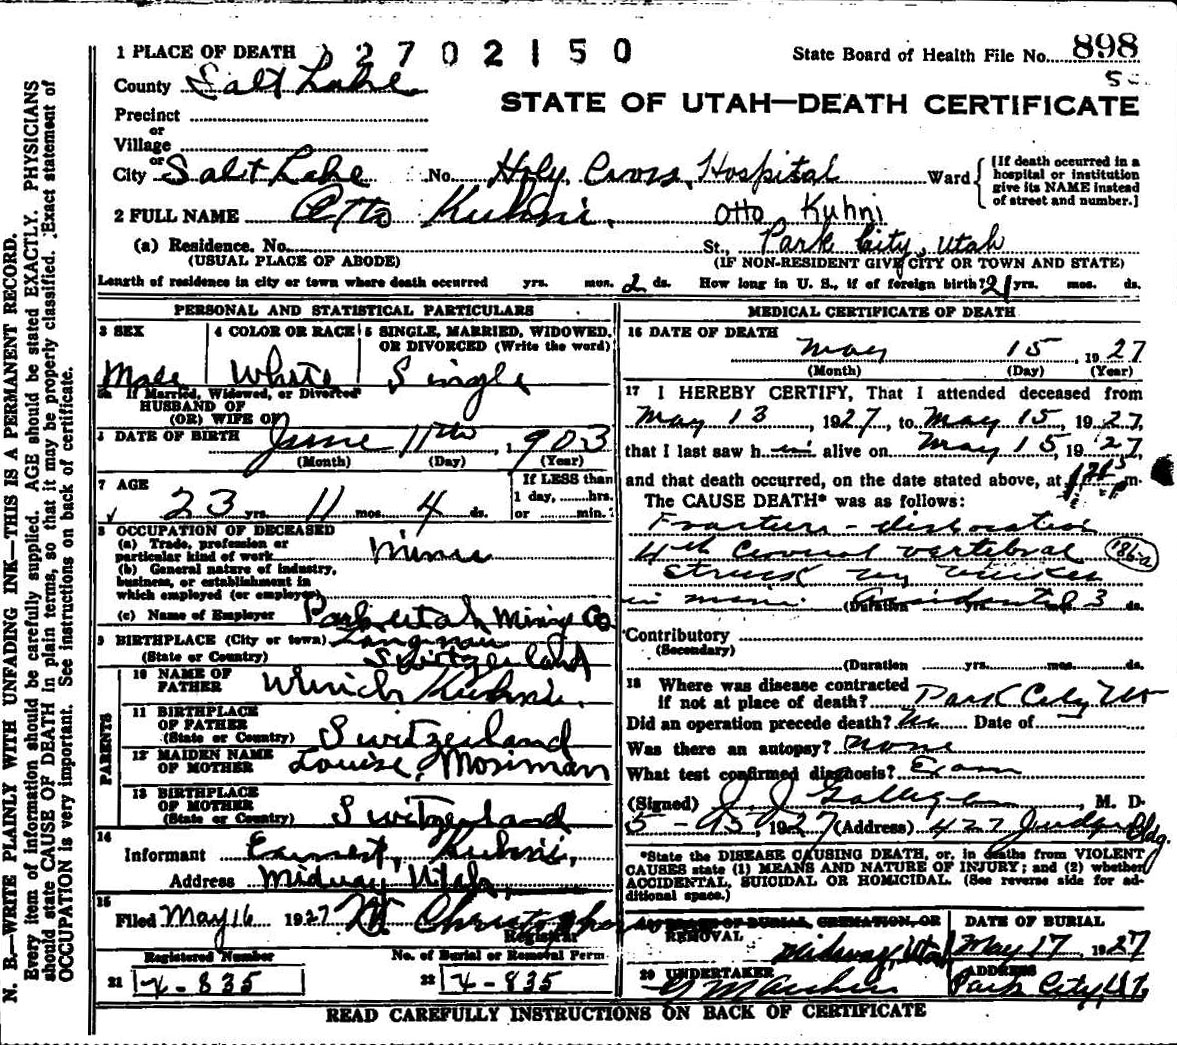 N. B.—WRITE PLAINLY WITH UNFADING INK—THIS IS A PERMANENT RECORD.
Every item of information should be carefully supplied. AGE should be stated EXACTLY. PHYSICIANS
should state CAUSE OF DEATH in plain terms, so that it may be properly classified. Exact statement of
OCCUPATION is very important. See instructions on back of certificate.
1 PLACE OF DEATH 2702150
State Board of Health File No. 898
County Salt Lake
STATE OF UTAH—DEATH CERTIFICATE
Precinct
or
Village
or
City Salt Lake No. Holy Cross Hospital Ward
[If death occurred in a
hospital or institution
give its NAME instead
of street and number.]
2 FULL NAME Otto Kuhni. Otto Kuhni
(a) Residence. No. St., Park City, Utah
(USUAL PLACE OF ABODE) (IF NON-RESIDENT GIVE CITY OR TOWN AND STATE)
Length of residence in city or town where death occurred yrs. mos. 2 ds. How long in U. S., if of foreign birth? 21 yrs. mos. ds.
PERSONAL AND STATISTICAL PARTICULARS
3 SEX
Male
4 COLOR OR RACE
White
5 SINGLE, MARRIED, WIDOWED,
OR DIVORCED (Write the word)
Single
5a If Married, Widowed, or Divorced
HUSBAND OF
(OR) WIFE OF
DATE OF BIRTH June 11th, 1903
(Month) (Day) (Year)
7 AGE
23 yrs. 11 mos. 4 ds.
If LESS than
1 day, hrs.
or min.
8 OCCUPATION OF DECEASED
(a) Trade, profession or
particular kind of work Miner
(b) General nature of industry,
business, or establishment in
which employed (or employer)
(c) Name of Employer Park Utah Mining Co
9 BIRTHPLACE (City or town) Langnau
(State or Country) Switzerland
PARENTS
10 NAME OF
FATHER Ulrich Kuhni.
11 BIRTHPLACE
OF FATHER
(State or Country) Switzerland
12 MAIDEN NAME
OF MOTHER Louise Mosiman
13 BIRTHPLACE
OF MOTHER
(State or Country) Switzerland
14
Informant Earnest Kuhni,
Address Midway Utah,
15
Filed May 16 1927
Registrar
Registered Number No. of Burial or Removal Perm
21 X-835 22 X-835
MEDICAL CERTIFICATE OF DEATH
16 DATE OF DEATH
May 15, 1927
(Month) (Day) (Year)
17 I HEREBY CERTIFY, That I attended deceased from
May 13, 1927, to May 15, 1927,
that I last saw him alive on May 15, 1927,
and that death occurred, on the date stated above, at m.
The CAUSE DEATH* was as follows:
Fracture - dislocation
4th Cervical vertebral
186-a
struck by
in mine. (Duration yrs. Accidental 3 ds.
Contributory
(Secondary)
(Duration yrs. mos. ds.
18 Where was disease contracted
if not at place of death? Park City Ut
Did an operation precede death? No Date of
Was there an autopsy? None
What test confirmed diagnosis? Exam
(Signed) J. J. M. D.
5-15, 1927 (Address) 427 Judge Bldg.
*State the DISEASE CAUSING DEATH, or, in deaths from VIOLENT
CAUSES state (1) MEANS AND NATURE OF INJURY; and (2) whether
ACCIDENTAL, SUICIDAL OR HOMICIDAL. (See reverse side for ad-
ditional space.)
PLACE OF BURIAL, CREMATION, OR
REMOVAL
Midway, Utah
DATE OF BURIAL
May 17, 1927
20 UNDERTAKER
ADDRESS
Park City, Ut.
READ CAREFULLY INSTRUCTIONS ON BACK OF CERTIFICATE